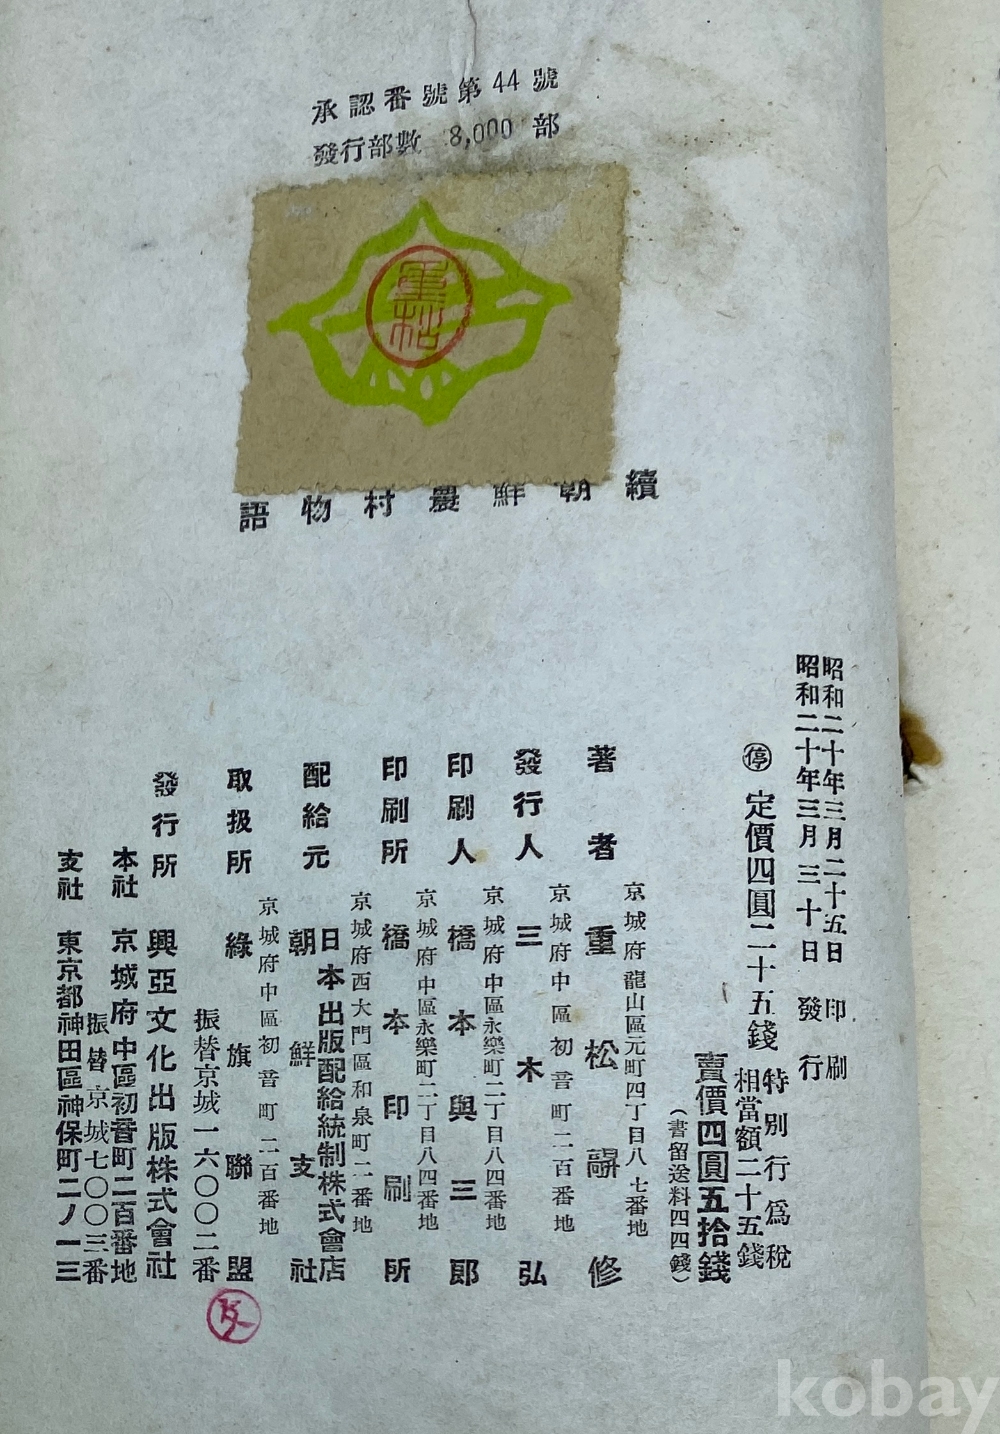 承認番號第44號
發行部數 8,000 部
重松
續朝鮮農村物語
昭和二十年三月二十五日 印刷
昭和二十年三月三十日 發行
停 定價四圓二十五錢
特別行爲稅
相當額二十五錢
賣價四圓五拾錢
(書留送料四四錢)
京城府龍山區元町四丁目八七番地
著者 重松髜修
京城府中區初音町二百番地
發行人 三木弘
京城府中區永樂町二丁目八四番地
印刷人 橋本與三郎
京城府中區永樂町二丁目八四番地
印刷所 橋本印刷所
京城府西大門區和泉町二番地
配給元 日本出版配給統制株式會店
朝鮮支社
京城府中區初音町二百番地
取扱所 綠旗聯盟
振替京城一六〇〇二番
發行所 興亞文化出版株式會社
本社 京城府中區初音町二百番地
振替京城七〇〇三番
支社 東京都神田區神保町二ノ一三
kobay